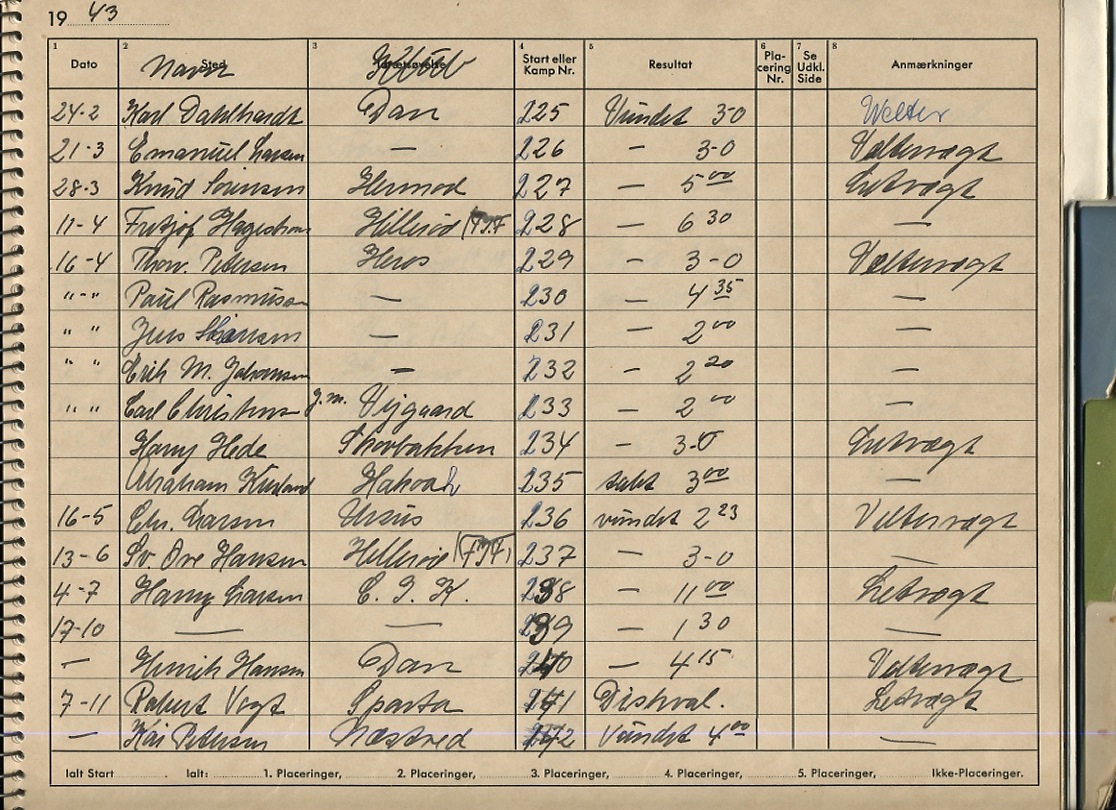 19 43
1 Dato 2 Sted Navn 3 Idrætsøvelse Klub 4 Start eller Kamp Nr. 5 Resultat 6 Pla-cering Nr. 7 Se Udkl. Side 8 Anmærkninger
24-2 Karl Dahlhardt Dan 225 Vundet 3-0 Welter
21-3 Emanuel Larsen — 226 — 3-0 Veltervægt
28-3 Knud Sørensen Hermod 227 — 5 00 Letvægt
11-4 Fritjof Hillerød (FIF 228 — 6 30 —
16-4 Thorv. Petersen Heros 229 — 3-0 Veltervægt
"-" Paul Rasmussen — 230 — 4 35 —
" " Jens — 231 — 2 00 —
" " Erik M. Johansen — 232 — 2 20 —
" " Carl Christensen g.m. Vejgaard 233 — 2 00 —
Harry Hede Skovbakken 234 — 3-0 Letvægt
Abraham Hakoah 235 tabt 3 00 —
16-5 Chr. Larsen Ursus 236 vundet 2 23 Veltervægt
13-6 Sv. Ove Hansen Hillerød (FIF) 237 — 3-0 —
4-7 Harry Larsen C. I. K. 238 — 11 00 Letvægt
17-10 — — 239 — 1 30 —
— Henrik Hansen Dan 240 — 4 15 Veltervægt
7-11 Robert Vogt Sparta 241 Diskval. Letvægt
— Kai Petersen Næstved 242 Vundet 4 00 —
Ialt Start Ialt: 1. Placeringer, 2. Placeringer, 3. Placeringer, 4. Placeringer, 5. Placeringer, Ikke-Placeringer.